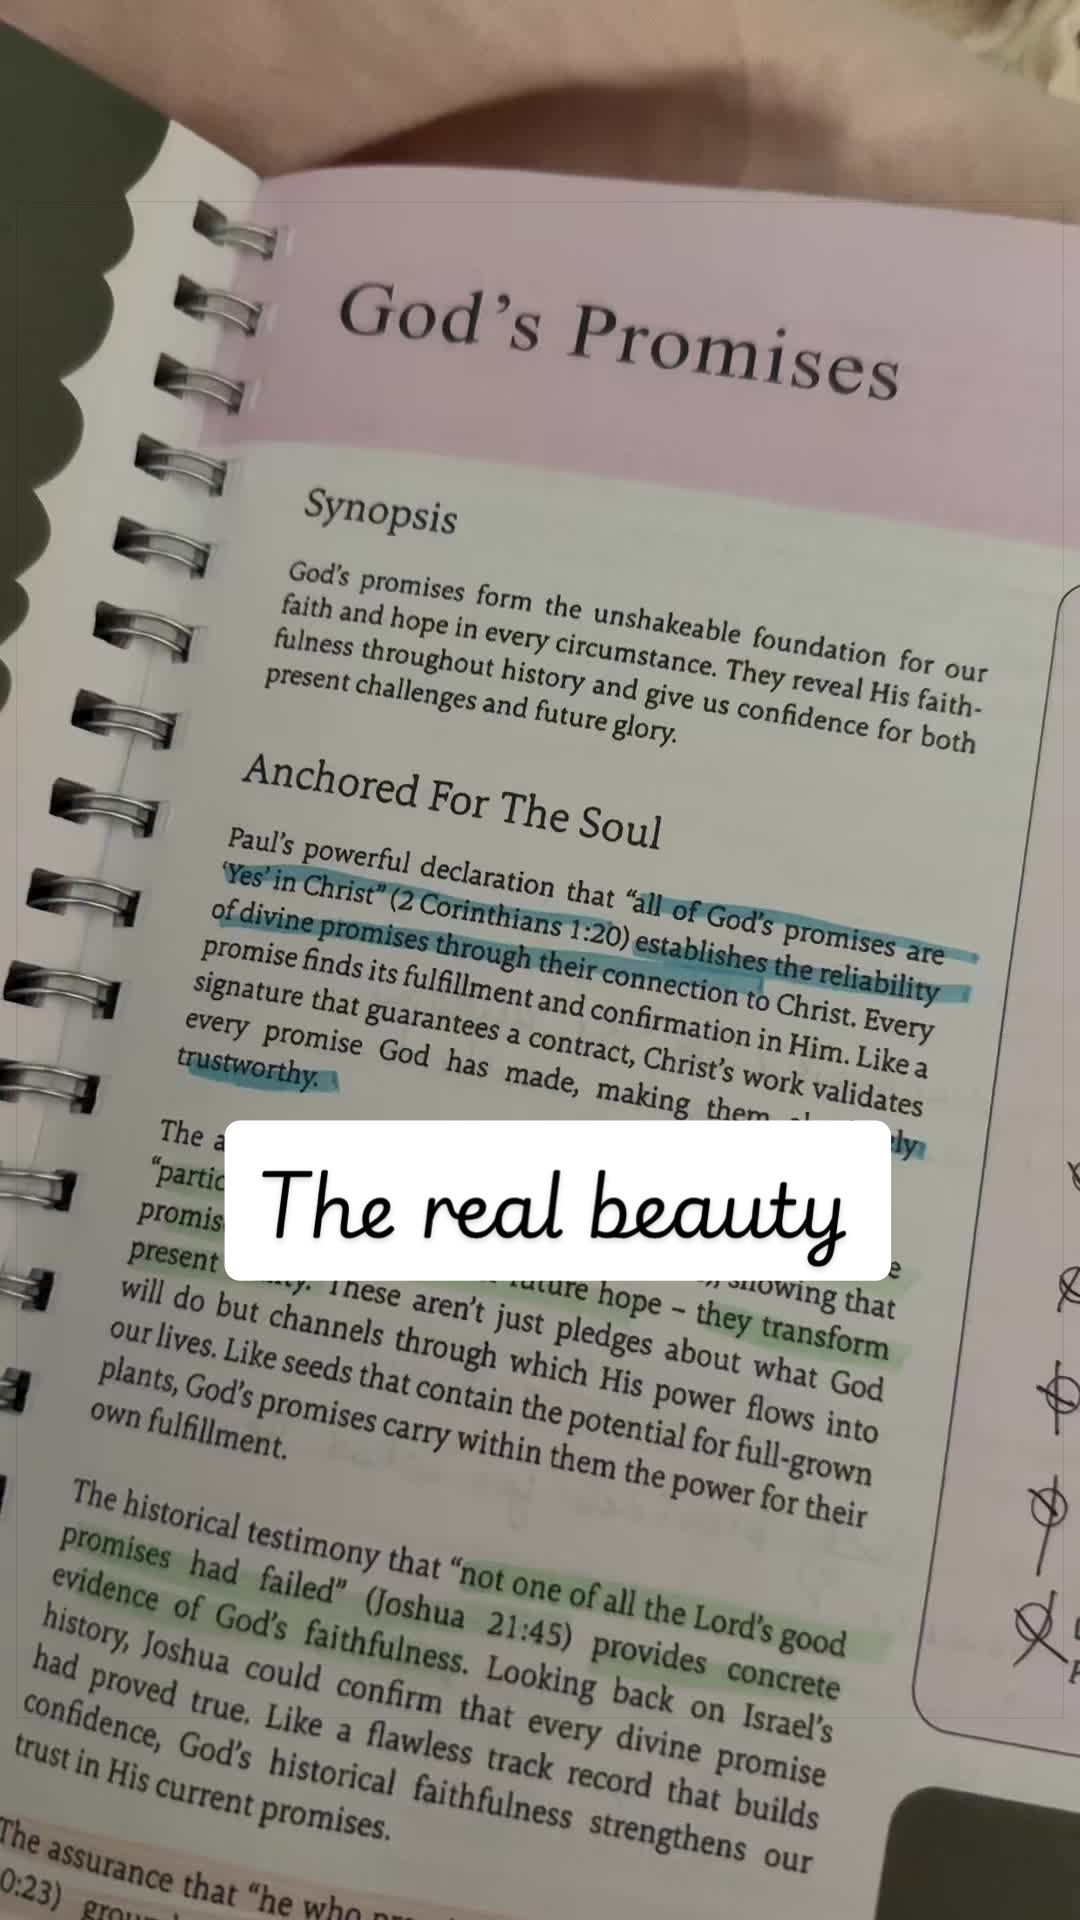 God's Promises
Synopsis
God's promises form the unshakeable foundation for our
faith and hope in every circumstance. They reveal His faith-
fulness throughout history and give us confidence for both
present challenges and future glory.
Anchored For The Soul
Paul's powerful declaration that “all of God's promises are
‘Yes’ in Christ” (2 Corinthians 1:20) establishes the reliability
of divine promises through their connection to Christ. Every
promise finds its fulfillment and confirmation in Him. Like a
signature that guarantees a contract, Christ's work validates
every promise God has made, making them
trustworthy.
The
The real beauty
present future hope – they transform
These aren't just pledges about what God
will do but channels through which His power flows into
our lives. Like seeds that contain the potential for full-grown
plants, God's promises carry within them the power for their
own fulfillment.
The historical testimony that “not one of all the Lord's good
promises had failed” (Joshua 21:45) provides concrete
evidence of God's faithfulness. Looking back on Israel's
history, Joshua could confirm that every divine promise
had proved true. Like a flawless track record that builds
confidence, God's historical faithfulness strengthens our
trust in His current promises.
The assurance that “he who
0:23)